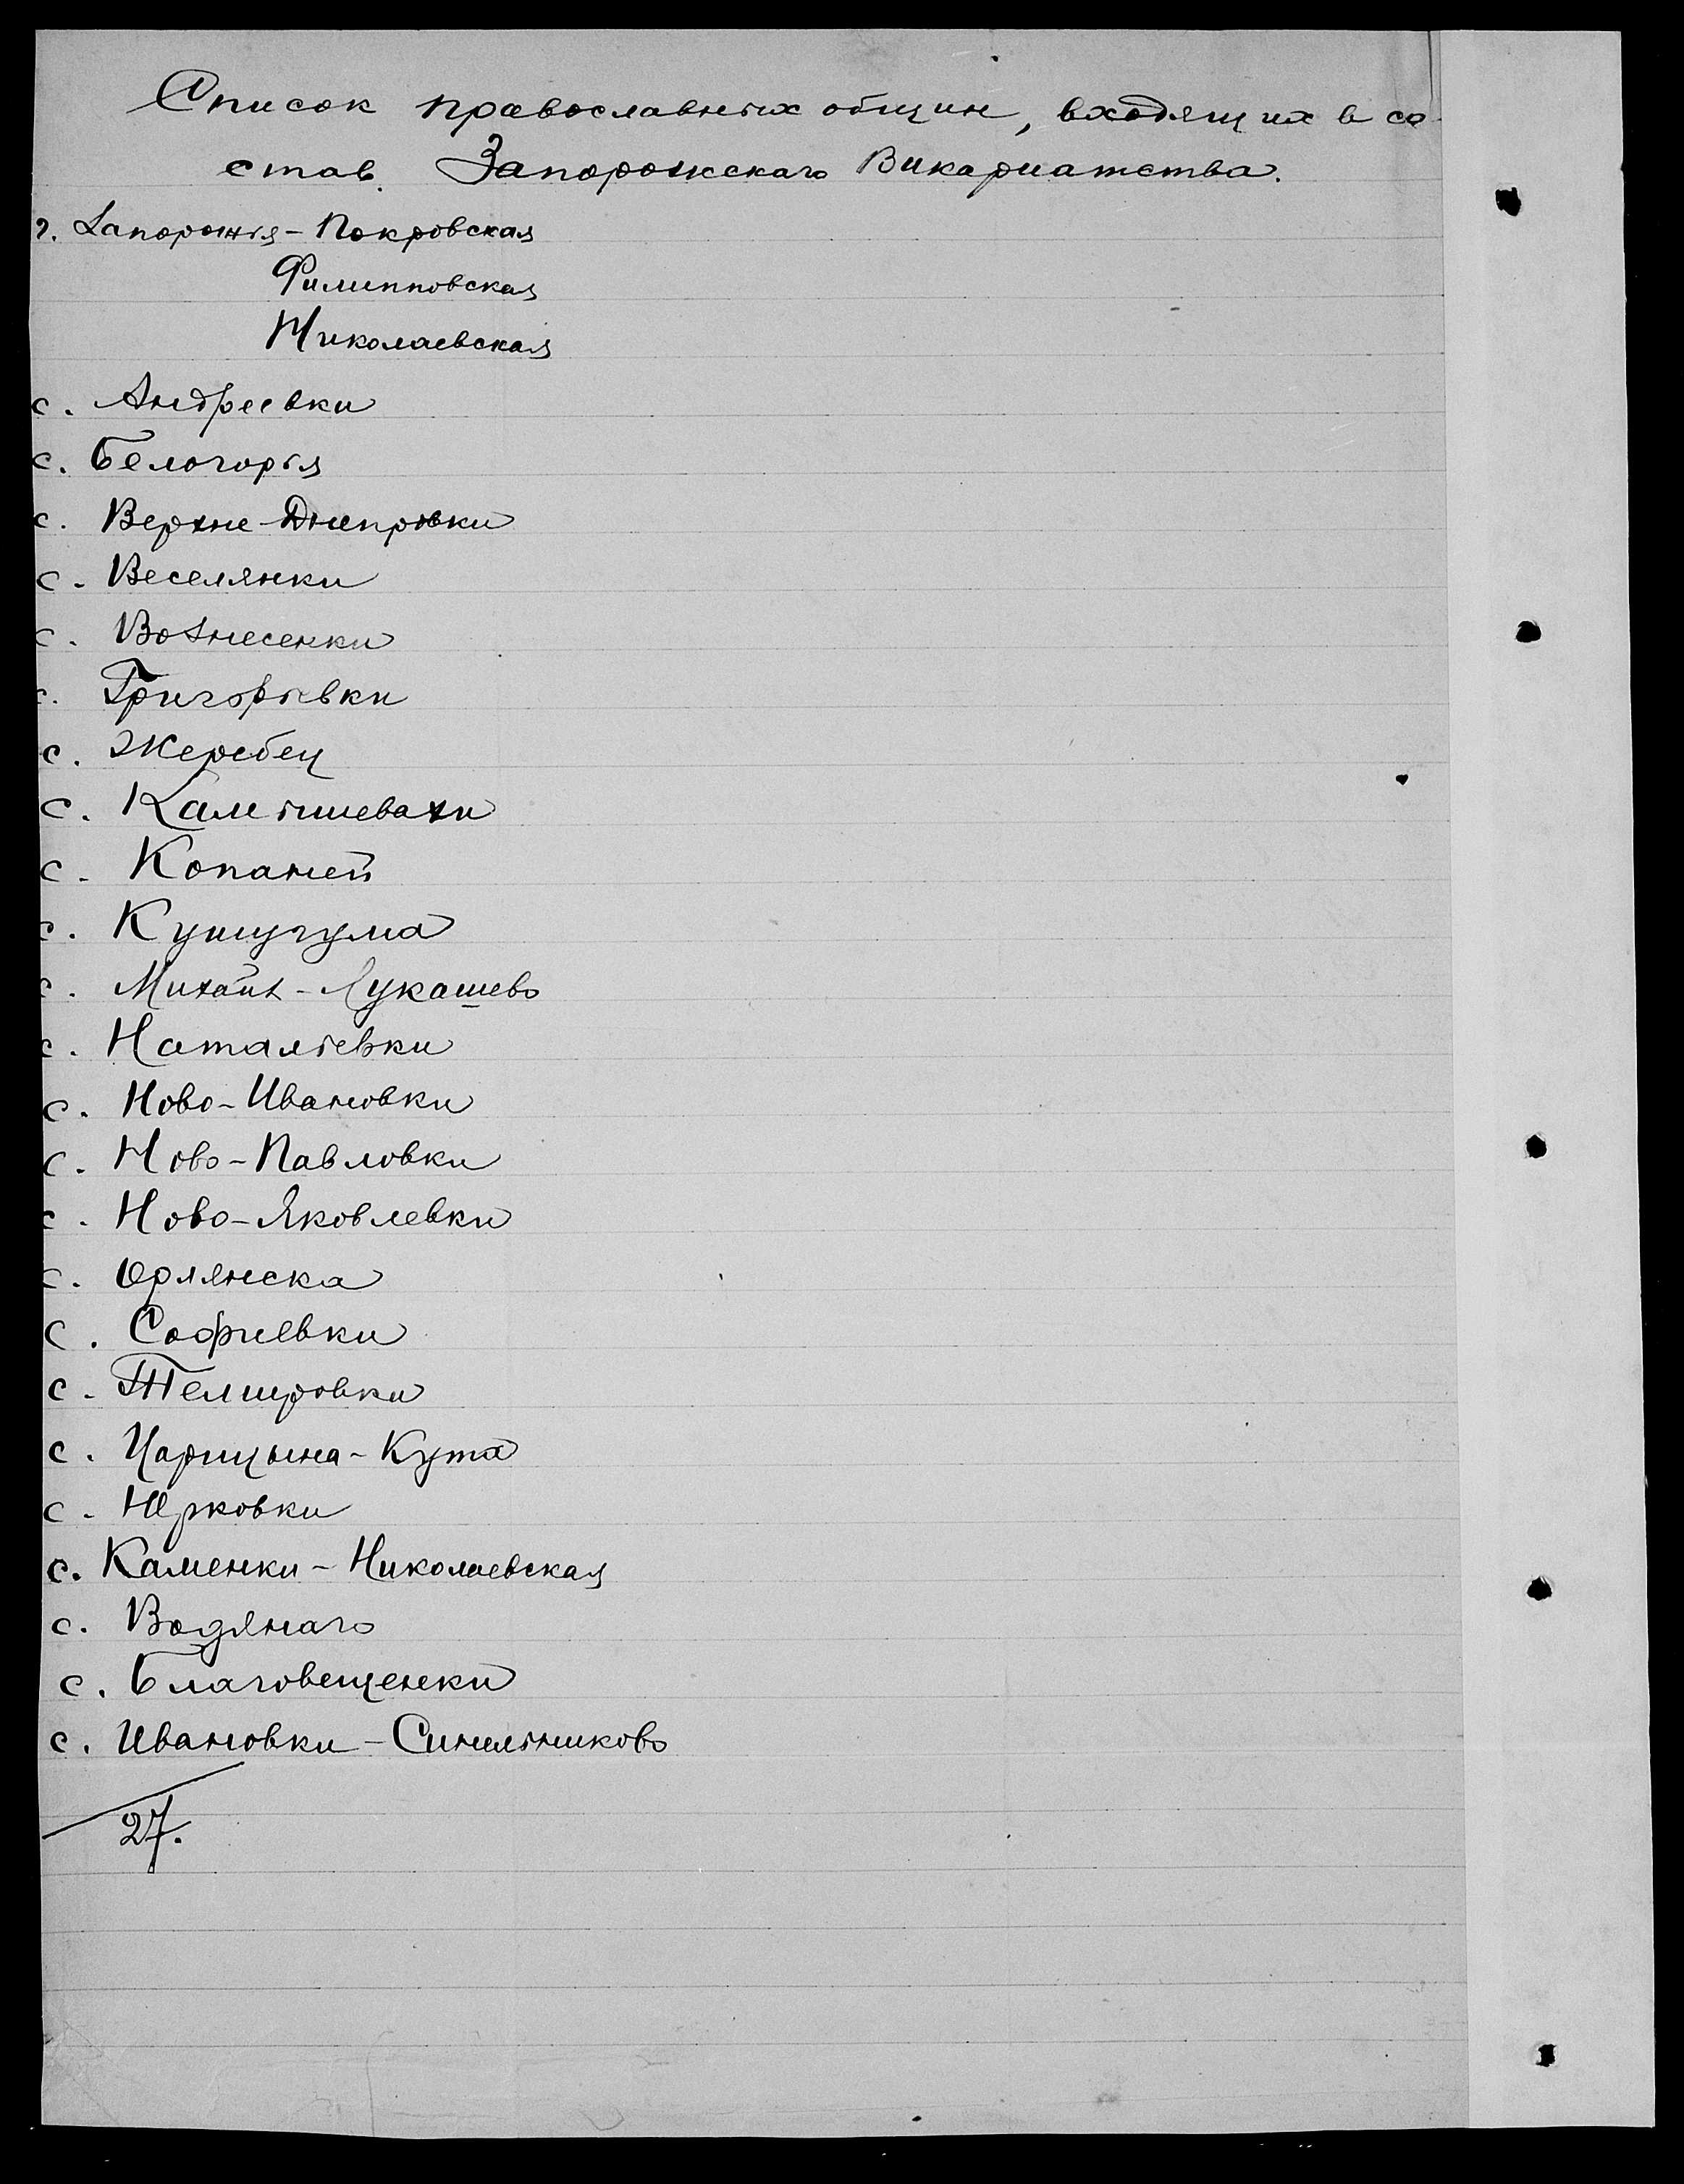 Список православных общин, входящих в со-
став Запорожскаго Викариатства.
г. Запорожья - Покровская
Филипповская
Николаевская
с. Андреевки
с. Белогорья
с. Верхне-Днепровки
с. Веселянки
с. Вознесенки
с. Григорьевки
с. Жеребец
с. Камышевахи
с. Копаней
с. Кушугума
с. Михайл-Лукашево
с. Натальевки
с. Ново-Ивановки
с. Ново-Павловки
с. Ново-Яковлевки
с. Орлянска
с. Софиевки
с. Темировки
с. Царицына-Кута
с. Юрковки
с. Каменки - Николаевская
с. Водянаго
с. Благовещенки
с. Ивановки - Синельниково
27.